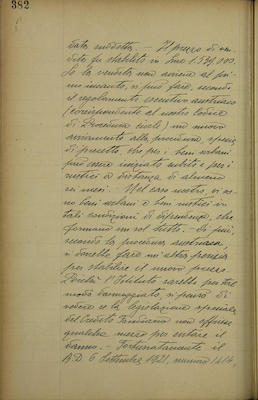 382
data suddetta. — Il prezzo di ven-
dita fu stabilito in Lire 1.539.000.
Se la vendita non avviene al pri-
mo incanto, si può fare, secondo
il regolamento esecutivo austriaco
(corrispondente al nostro Codice
di Procedura civile) un nuovo
alla procedura
di, che per i beni urbani
può venire iniziata subito e per i
rustici a distanza di almeno
sei mesi. Nel caso nostro, vi so-
no beni urbani e beni rustici in
tali condizioni di dipendenza, che
formano un sol tutto. — Di più,
secondo la procedura austriaca
si dovrebbe fare un'altra perizia
per stabilire il nuovo prezzo.
Perchè l'Istituto sarebbe per tal
modo danneggiato, si pensò di
vedere se la legislazione speciale
del Credito Fondiario non offrisse
qualche mezzo per evitare il
danno. — Fortunatamente il
R.D. 6 Settembre 1921, numero 1414,